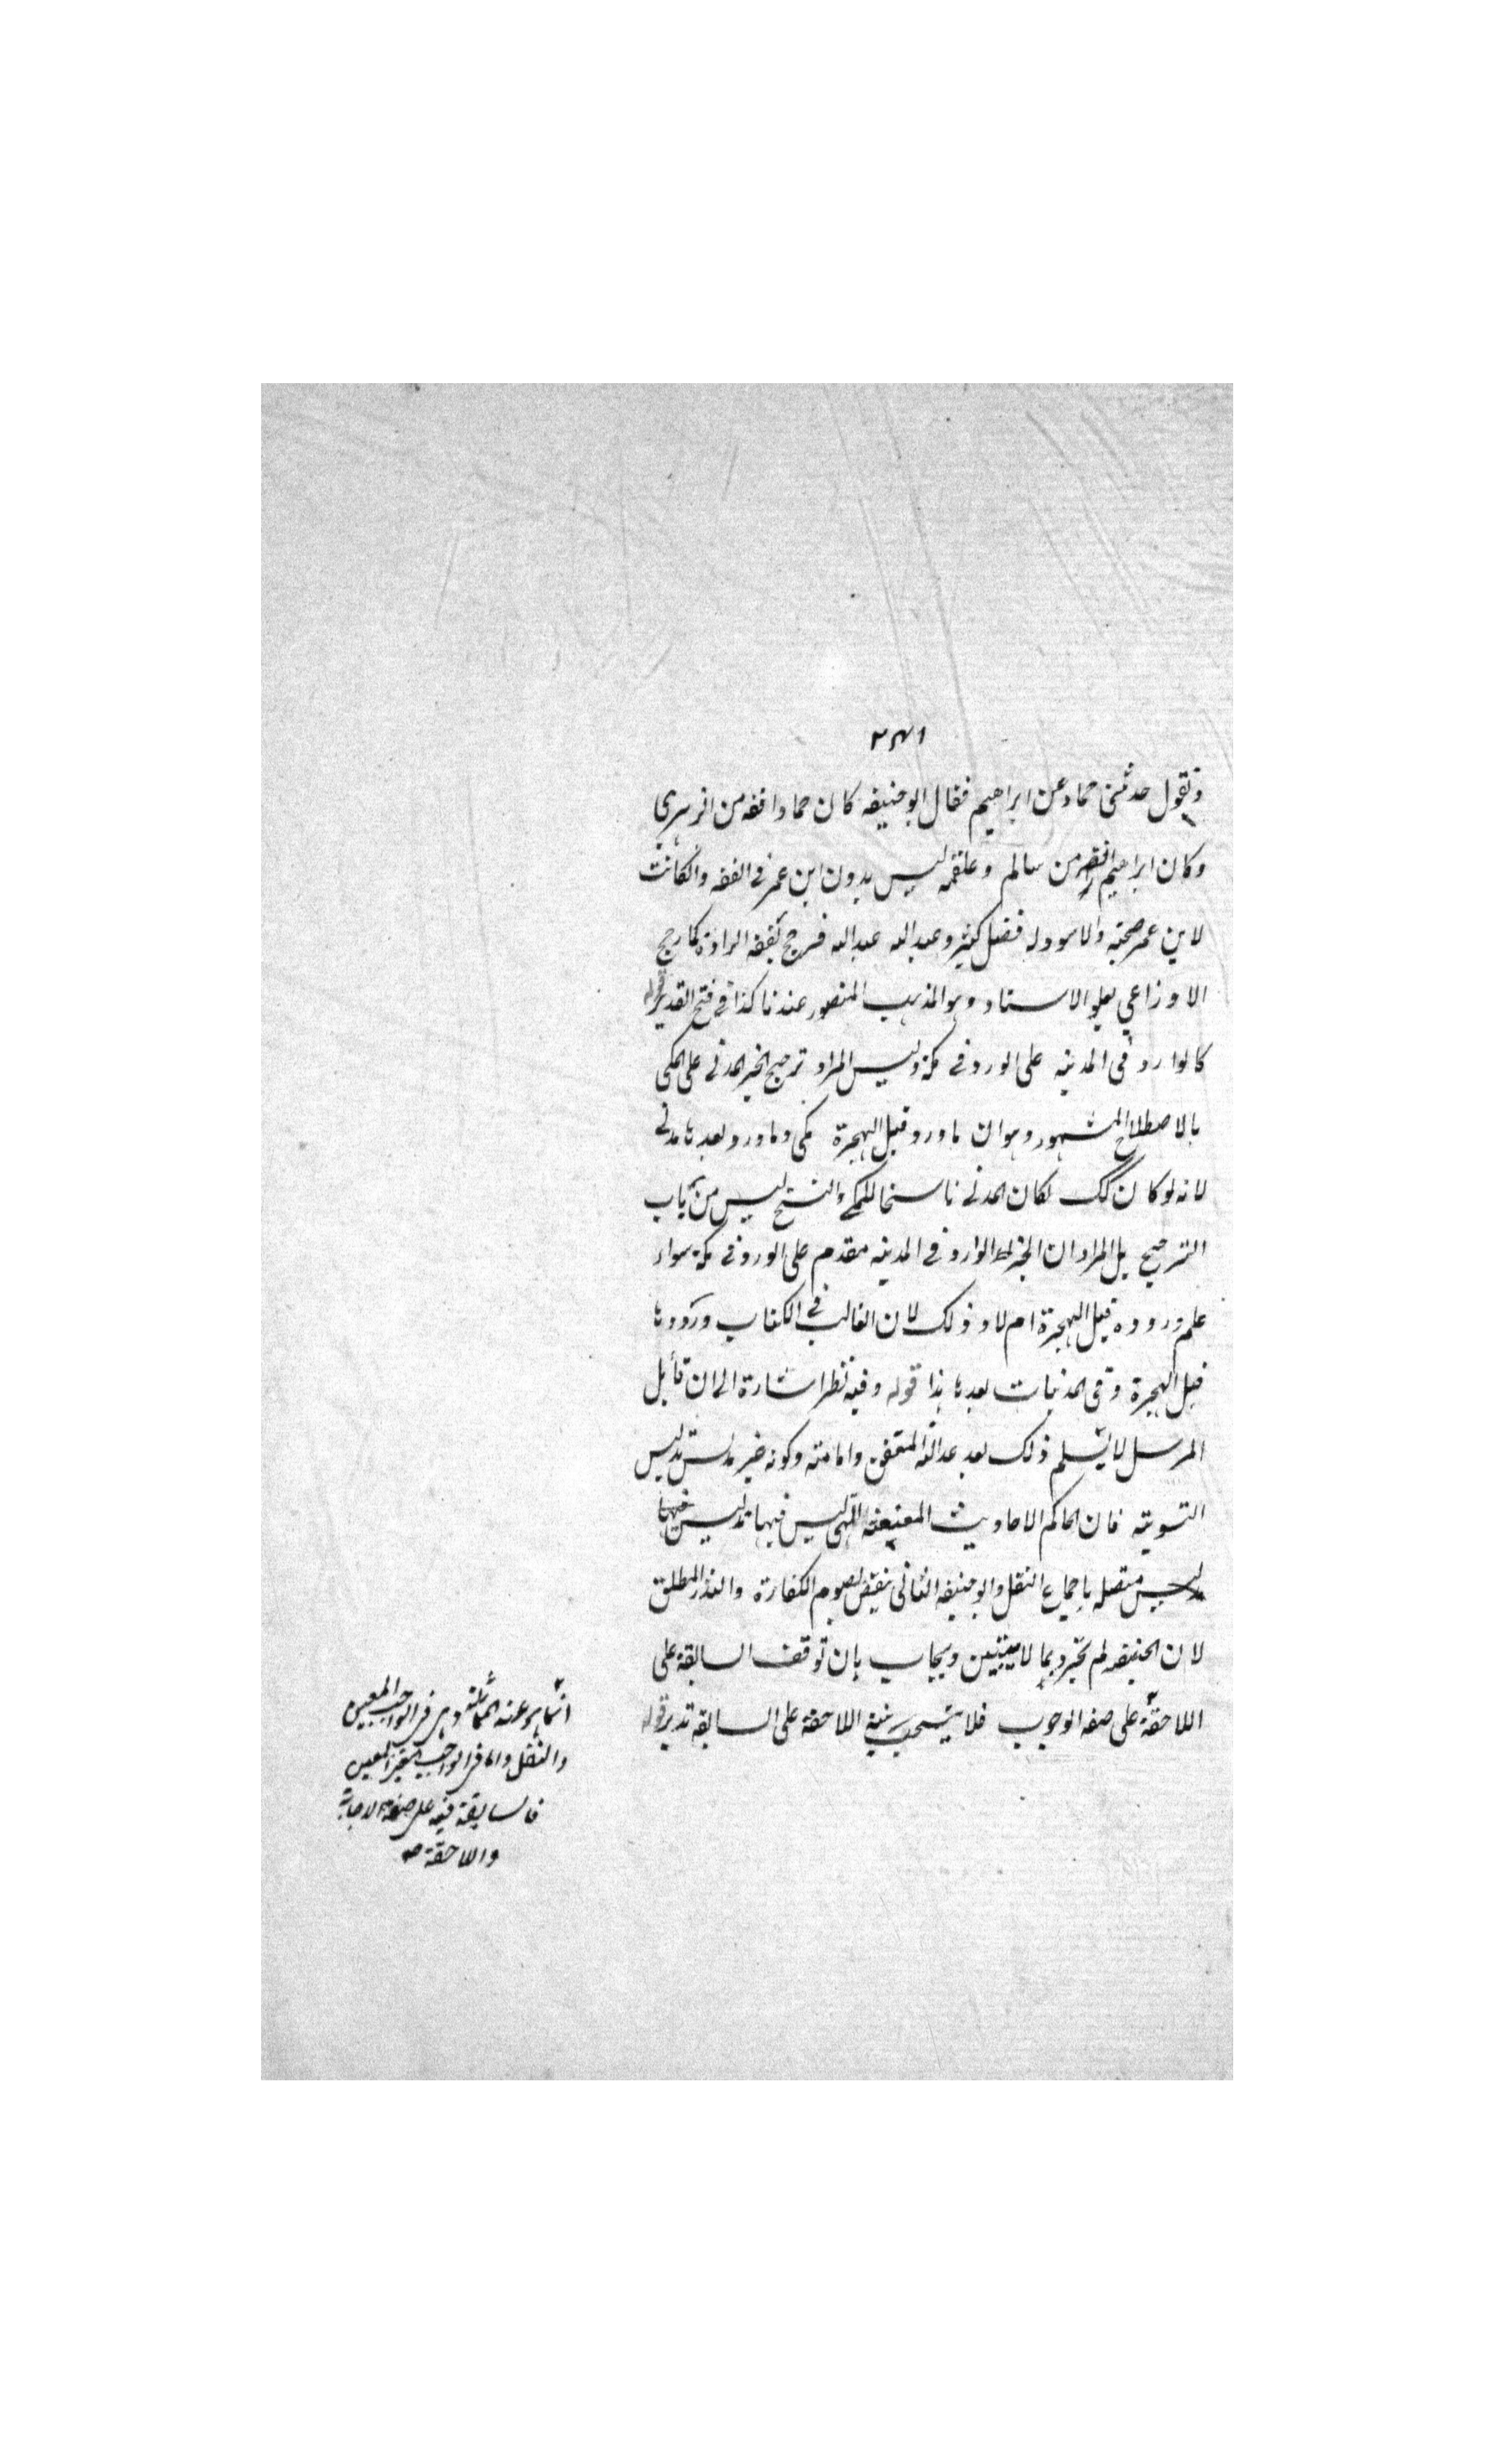 ٢٣٨١
وتقول حدثنى حماد عن ابراهيم فقال ابو حنيفه كان حماد افقه من الزهري
وكان ابراهيم افقه من سالم وعلقمه ليس بدون ابن عمر فى الفقه وان كانت
لابن عمر صحبته والاسود له فضل كثير وعبد الله عبد الله فرجح بفقه الرواة كما رجح
الاوزاعي بعلو الاسناد وهو المذهب المنصور عندنا كذا فى فتح القدير قوله
كالوارد فى المدينه على الورد فى مكة وليس المراد ترجيح الخبر المدنى على المكى
بالاصطلاح المشهور وهو ان ما ورد قبل الهجرة مكى وما ورد بعدها مدنى
لانه لو كان كك لكان المدنى ناسخا للمكى والنسخ ليس من باب
الترجيح بل المراد ان الخبر الوارد فى المدينه مقدم على الورد فى مكة سواء
علم وروده قبل الهجرة ام لا وذلك لان الغالب فى الكتاب ورودها
قبل الهجرة وفى المدنيات بعدها هذا قوله وفيه نظر اشارة الى ان قابل
المرسل لا يسلم ذلك بعد عدالة المتفق وامامته وكونه غير مدلس تدليس
التسويته فان الحاكم الاحاديث المعنعنة التى ليس فيها تدليس
متصله باجماع النقل وابو حنيفه الثانى نقيض لصوم الكفارة والنذر المطلق
لان الحنيفه لم يجوزوبما لا بينيتين ويجاب بان توقف السابقة على
اللاحقة على صفه الوجوب فلا يستحب نية اللاحقة على السابقه تدبر قوله
انما هو عند المماثلة وهى فى الواجب المعين
والنفل واما فى الواجب الغير المعين
فالسابقة فيه على صفة
واللاحقة صه